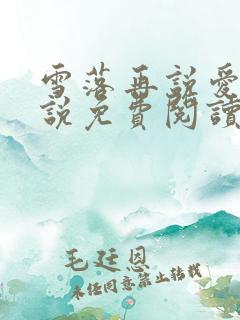 雪落再說愛
說免費閱讀
毛廷恩
未經同意禁止轉載